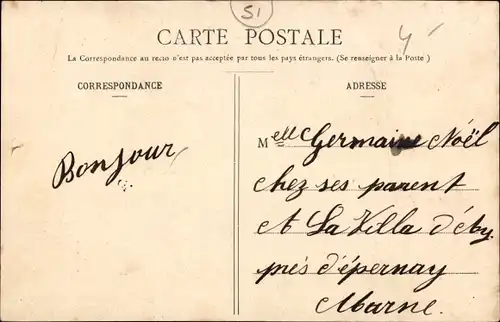 51
CARTE POSTALE
La Correspondance au recto n'est pas acceptée par tous les pays étrangers. (Se renseigner à la Poste)
CORRESPONDANCE
ADRESSE
Bonjour
Melle Germaine Noël
chez ses parent
et La Villa d'éty.
prés d'épernay
Marne.